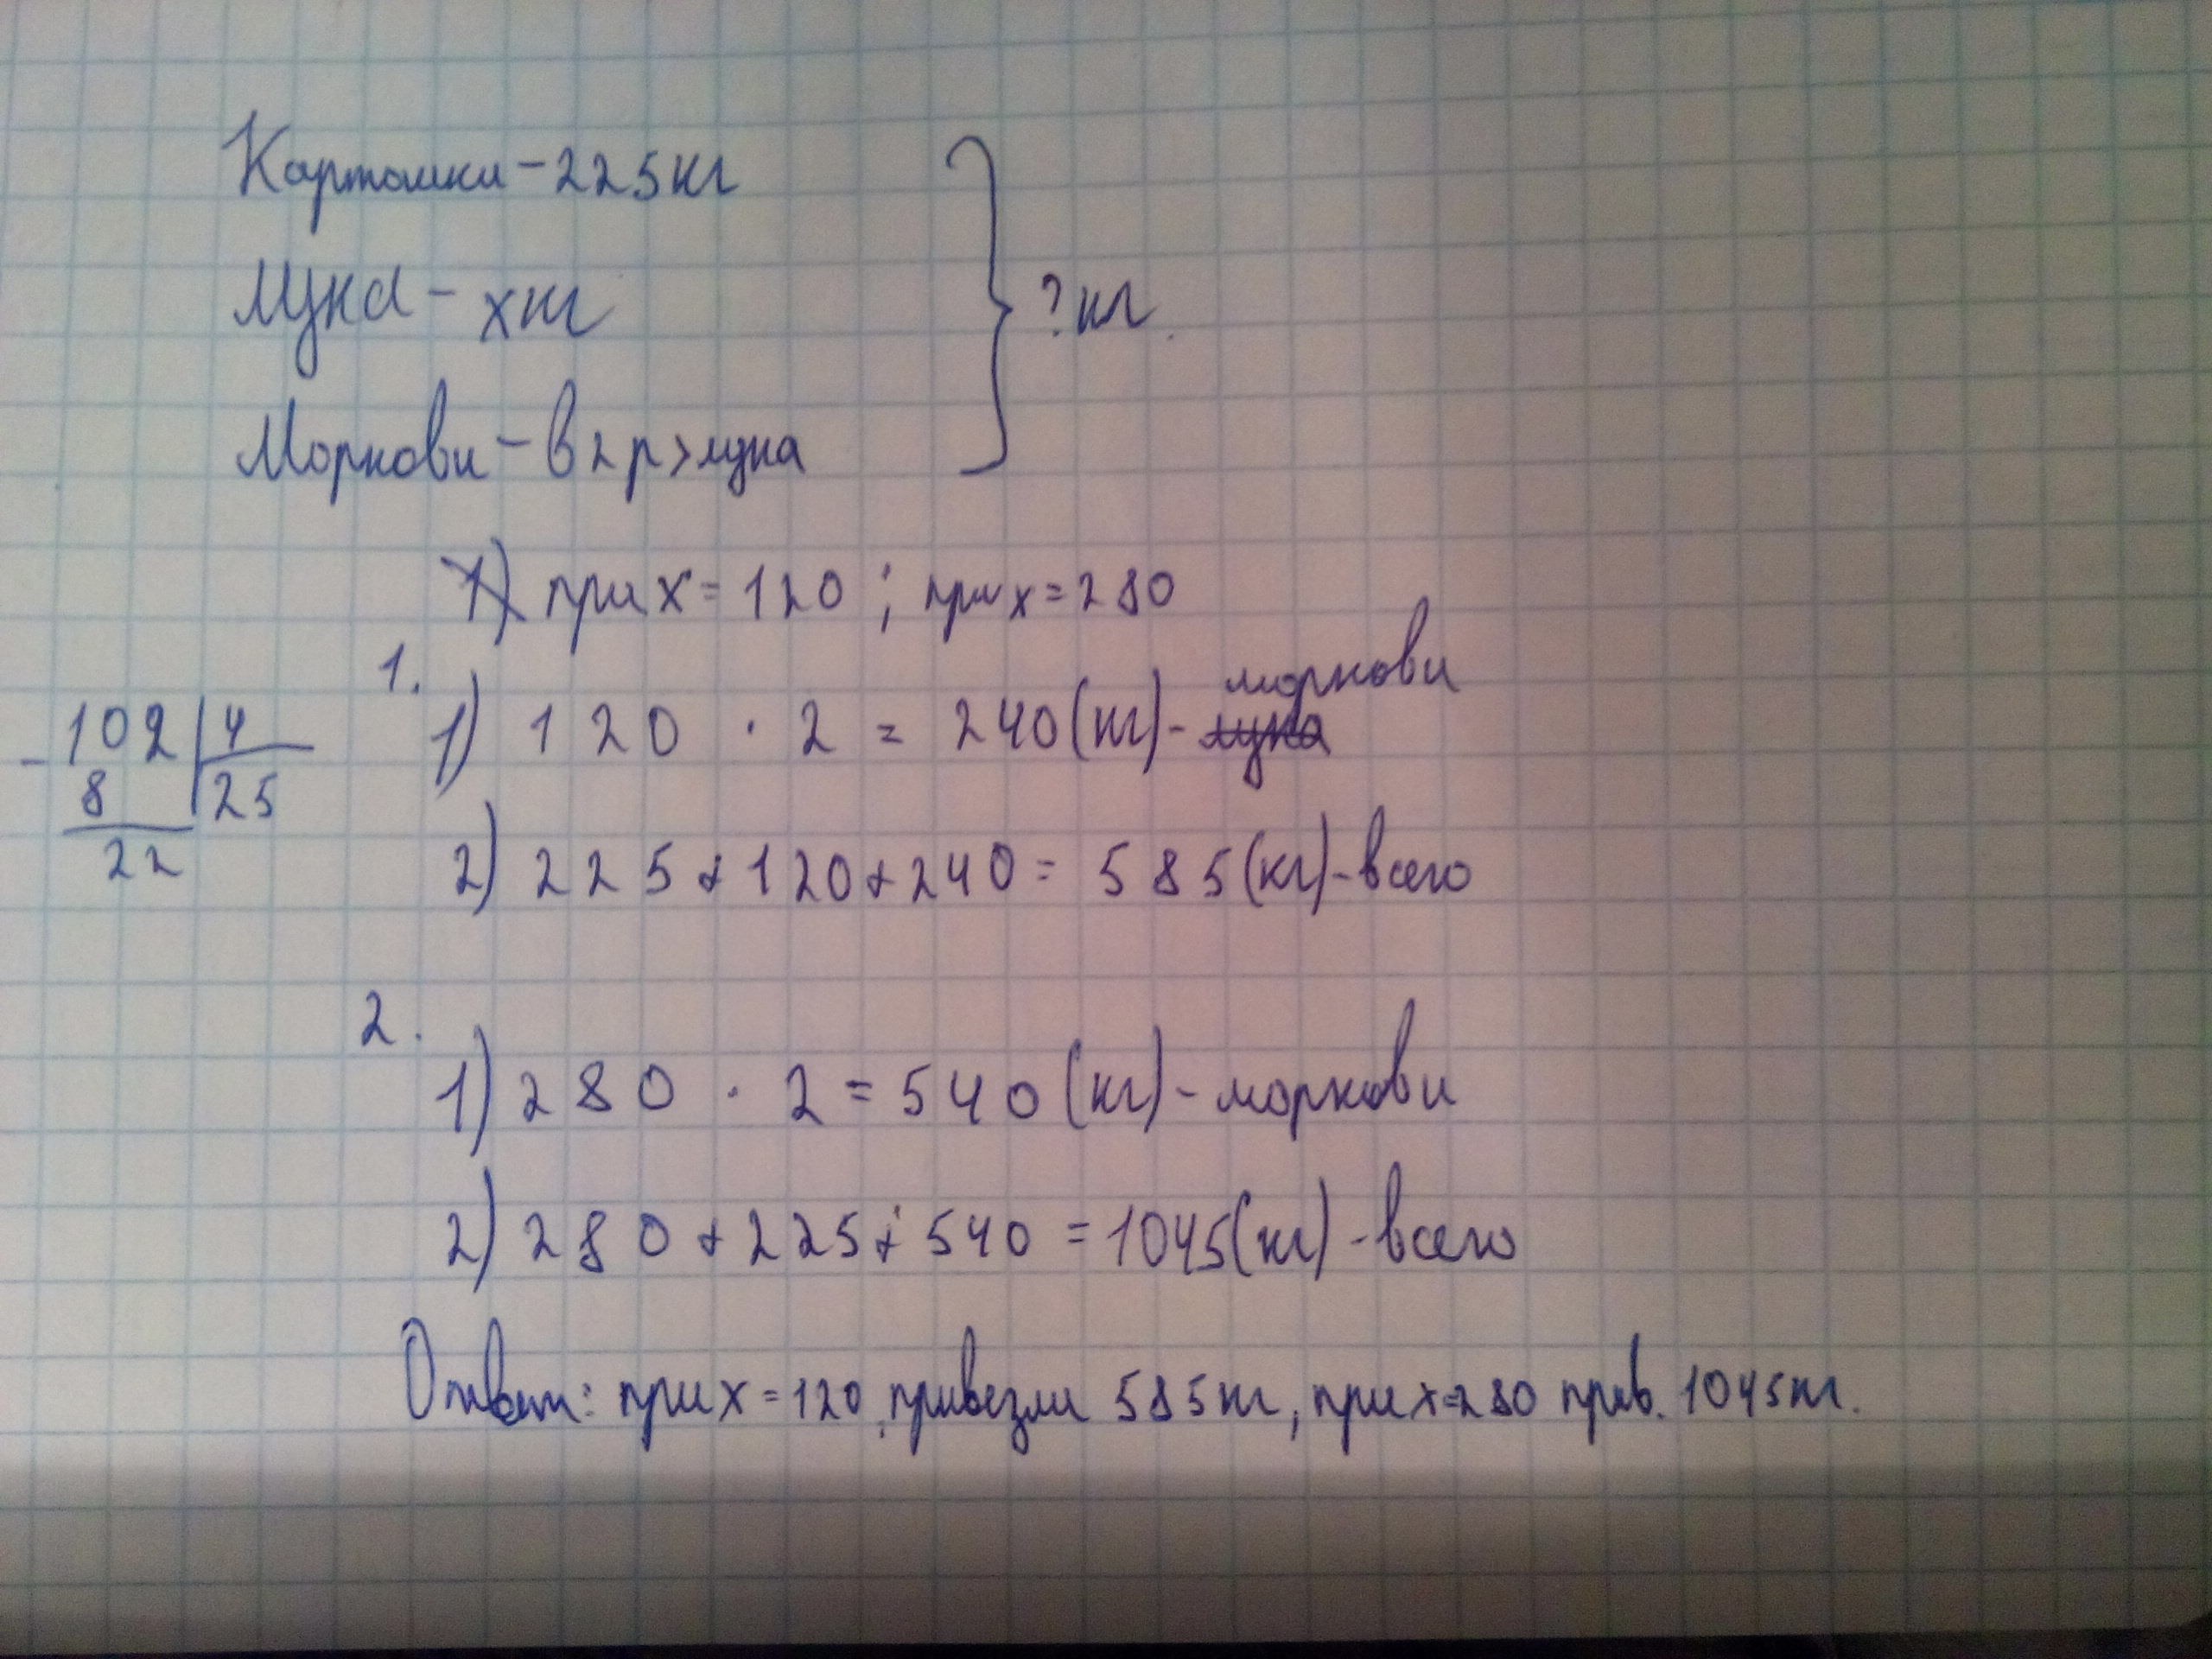 Картошки - 225кг
Лука - х кг
? кг.
Моркови - в 2 р > лука
1) при х = 120 ; при х = 280
1.
моркови
1) 120 · 2 = 240 (кг) - лука
102 4
8 25
22
2) 225 + 120 + 240 = 585 (кг) - всего
2.
1) 280 · 2 = 540 (кг) - моркови
2) 280 + 225 + 540 = 1045 (кг) - всего
Ответ: при х = 120, привезли 585кг, при х=280 прив. 1045кг.